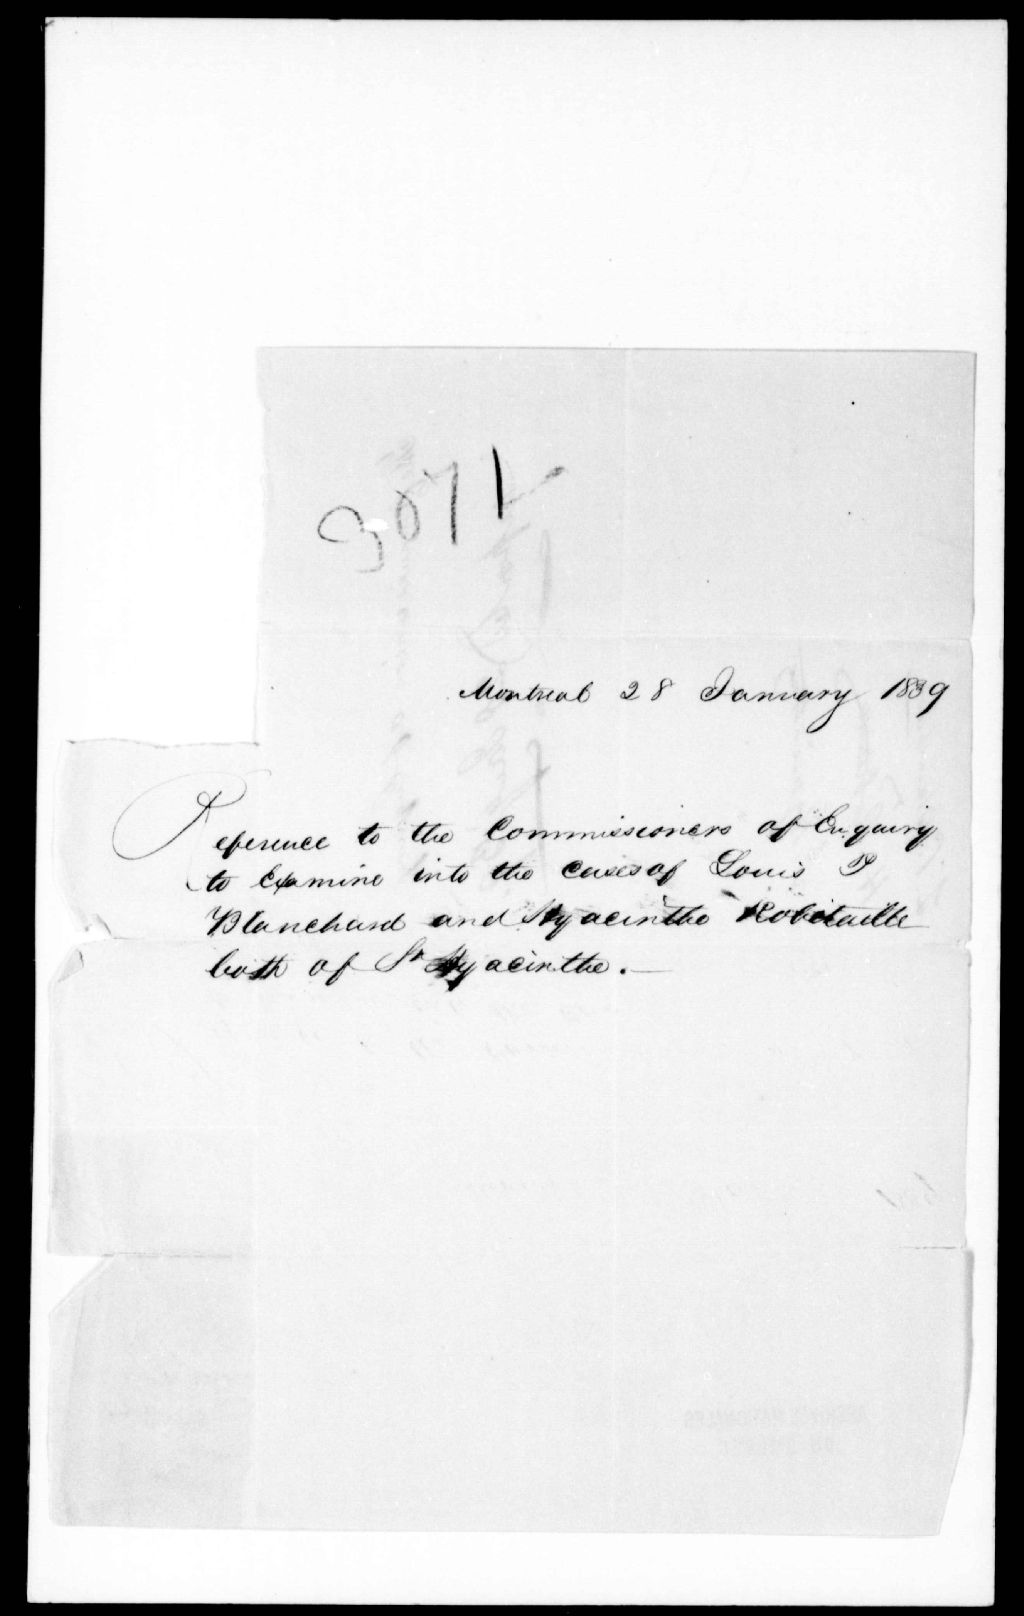 3071
Montreal 28 January 1839
Reference to the Commissioners of Enquiry
to Examine into the cases of Louis P
Blanchard and Hyacinthe Robitaille
both of St Hyacinthe.